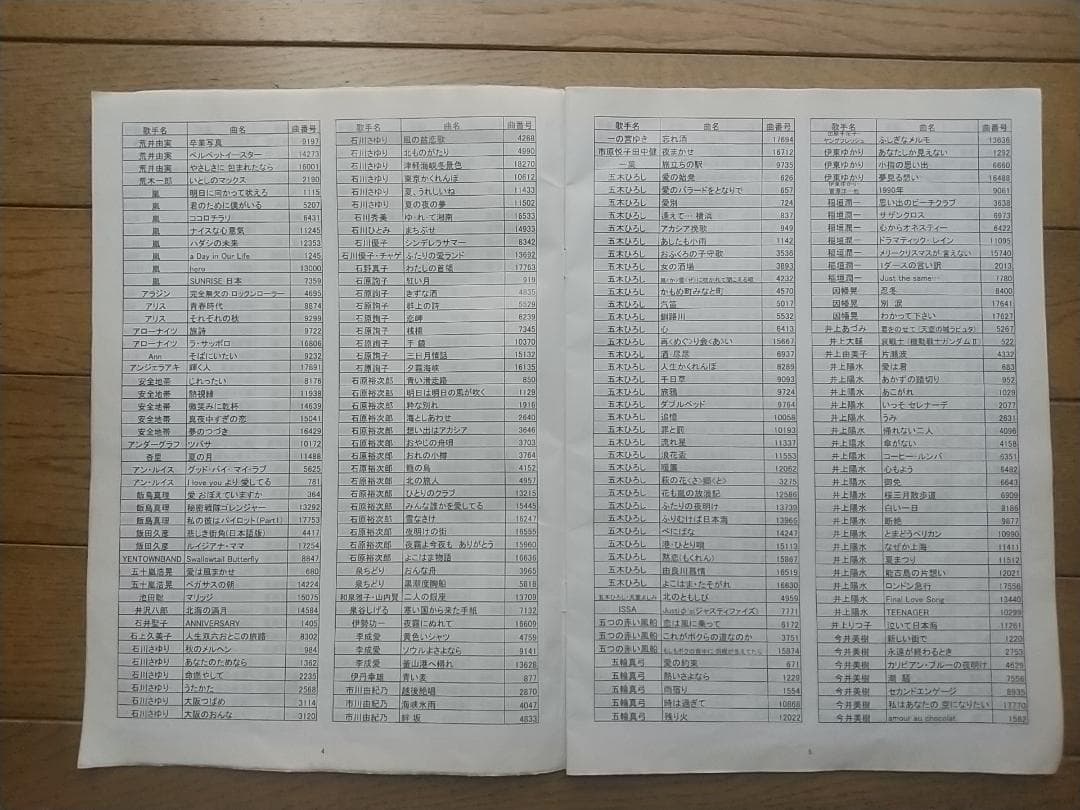 歌手名 曲名 曲番号
荒井由実 卒業写真 9197
荒井由実 ベルベットイースター 14273
荒井由実 やさしさに 包まれたなら 16001
荒木一郎 いとしのマックス 2190
嵐 明日に向かって吠えろ 1115
嵐 君のために僕がいる 5207
嵐 ココロチラリ 6431
嵐 ナイスな心意気 11245
嵐 ハダシの未来 12353
嵐 a Day in Our Life 1245
嵐 hero 13000
嵐 SUNRISE 日本 7359
アラジン 完全無欠の ロックンローラー 4695
アリス 青春時代 8874
アリス それぞれの秋 9299
アローナイツ 旅詩 9722
アローナイツ ラ・サッポロ 16806
Ann そばにいたい 9232
アンジェラアキ 輝く人 17691
安全地帯 じれったい 8176
安全地帯 熱視線 11938
安全地帯 微笑みに乾杯 14639
安全地帯 真夜中すぎの恋 15041
安全地帯 夢のつづき 16429
アンダーグラフ ツバサ 10172
杏里 夏の月 11486
アン・ルイス グッド・バイ・マイ・ラブ 5625
アン・ルイス I love you より愛してる 781
飯島真理 愛 おぼえていますか 364
飯島真理 秘密戦隊ゴレンジャー 13292
飯島真理 私の彼はパイロット(Part1) 17753
飯田久彦 悲しき街角(日本語版) 4417
飯田久彦 ルイジアナ・ママ 17254
YENTOWNBAND Swallowtail Butterfly 8847
五十嵐浩晃 愛は風まかせ 680
五十嵐浩晃 ペガサスの朝 14224
池田聡 マリッジ 15075
井沢八郎 北海の満月 14584
石井聖子 ANNIVERSARY 1405
石上久美子 人生双六おとこの旅路 8302
石川さゆり 秋のメルヘン 984
石川さゆり あなたのためなら 1362
石川さゆり 命燃やして 2235
石川さゆり うたかた 2568
石川さゆり 大阪つばめ 3114
石川さゆり 大阪のおんな 3120
歌手名 曲名 曲番号
石川さゆり 風の盆恋歌 4268
石川さゆり 北ものがたり 4990
石川さゆり 津軽海峡冬景色 18270
石川さゆり 東京かくれんぼ 10612
石川さゆり 夏、うれしいね 11433
石川さゆり 夏の夜の夢 11502
石川秀美 ゆ・れ・て湘南 16533
石川ひとみ まちぶせ 14933
石川優子 シンデレラサマー 8342
石川優子・チャゲ ふたりの愛ランド 13692
石野真子 わたしの首領 17763
石原詢子 紅い月 919
石原詢子 きずな酒 4835
石原詢子 砂上の詩 5529
石原詢子 恋岬 6239
石原詢子 桟橋 7345
石原詢子 手鏡 10370
石原詢子 三日月情話 15132
石原詢子 夕霧海峡 16135
石原裕次郎 青い滑走路 850
石原裕次郎 明日は明日の風が吹く 1129
石原裕次郎 粋な別れ 1916
石原裕次郎 海としあわせ 2640
石原裕次郎 想い出はアカシア 3646
石原裕次郎 おやじの舟唄 3703
石原裕次郎 おれの小樽 3764
石原裕次郎 鴎の鳥 4152
石原裕次郎 北の旅人 4957
石原裕次郎 ひとりのクラブ 13215
石原裕次郎 みんな誰かを愛してる 15445
石原裕次郎 雪なさけ 16247
石原裕次郎 夜明けの街 16555
石原裕次郎 夜霧よ今夜も ありがとう 15960
石原裕次郎 よこはま物語 16636
泉ちどり おんな舟 3965
泉ちどり 黒潮度胸船 5818
和泉雅子・山内賢 二人の銀座 13709
泉谷しげる 寒い国から来た手紙 7132
伊勢功一 夜霧にぬれて 16609
李成愛 黄色いシャツ 4759
李成愛 ソウルよさようなら 9141
李成愛 釜山港へ帰れ 13628
伊丹幸雄 青い麦 877
市川由紀乃 越後絶唱 2870
市川由紀乃 海峡氷雨 4047
市川由紀乃 絆坂 4833
4
歌手名 曲名 曲番号
一の宮ゆき 忘れ酒 17694
市原悦子田中健 夜まかせ 16712
一葉 旅立ちの駅 9735
五木ひろし 愛の始発 626
五木ひろし 愛のバラードをとなりで 657
五木ひろし 愛別 724
五木ひろし 逢えて… 横浜 837
五木ひろし アカシア挽歌 949
五木ひろし あしたも小雨 1142
五木ひろし おふくろの子守歌 3536
五木ひろし 女の酒場 3893
五木ひろし 4232
五木ひろし かもめ町みなと町 4570
五木ひろし 汽笛 5017
五木ひろし 釧路川 5532
五木ひろし 心 6413
五木ひろし 再〈めぐり〉会〈あ〉い 15667
五木ひろし 酒・尽尽 6937
五木ひろし 人生かくれんぼ 8289
五木ひろし 千日草 9093
五木ひろし 旅鴉 9724
五木ひろし ダブルベッド 9764
五木ひろし 追憶 10058
五木ひろし 罪と罰 10193
五木ひろし 流れ星 11337
五木ひろし 浪花盃 11553
五木ひろし 暖簾 12062
五木ひろし 萩の花〈さ〉郷〈と〉 3275
五木ひろし 花も嵐の放浪記 12586
五木ひろし ふたりの夜明け 13739
五木ひろし ふりむけば日本海 13965
五木ひろし べにばな 14247
五木ひろし 港・ひとり唄 15113
五木ひろし 黙恋(もくれん) 15867
五木ひろし 由良川慕情 16515
五木ひろし よこはま・たそがれ 16630
五木ひろし・天童よしみ 北のともしび 4959
ISSA Justiφ's(ジャスティファイズ) 7771
五つの赤い風船 恋は風に乗って 6172
五つの赤い風船 これがボクらの道なのか 3751
五つの赤い風船 もしもボクの背中に 羽根が生えてたら 15874
五輪真弓 愛の約束 671
五輪真弓 熱いさよなら 1229
五輪真弓 雨宿り 1554
五輪真弓 時は過ぎて 10868
五輪真弓 残り火 12022
歌手名 曲名 曲番号
ヤングフレッシュ ふしぎなメルモ 13636
伊東ゆかり あなたしか見えない 1292
伊東ゆかり 小指の思い出 6660
伊東ゆかり 夢見る想い 16488
1990年 9061
稲垣潤一 思い出のビーチクラブ 3638
稲垣潤一 サザンクロス 6973
稲垣潤一 心からオネスティー 6422
稲垣潤一 ドラマティック・レイン 11095
稲垣潤一 メリークリスマスが 言えない 15740
稲垣潤一 1ダースの言い訳 2013
稲垣潤一 Just the same… 1780
因幡晃 忍冬 8400
因幡晃 別涙 17641
因幡晃 わかって下さい 17627
井上あづみ 君をのせて (天空の城ラピュタ) 5267
井上大輔 哀戦士 (機動戦士ガンダムⅡ) 522
井上由美子 片瀬波 4332
井上陽水 愛は君 683
井上陽水 あかずの踏切り 952
井上陽水 あこがれ 1029
井上陽水 いっそ セレナーデ 2077
井上陽水 うみ 2631
井上陽水 帰れない二人 4096
井上陽水 傘がない 4158
井上陽水 コーヒー・ルンバ 6351
井上陽水 心もよう 6482
井上陽水 御免 6643
井上陽水 桜三月散歩道 6909
井上陽水 白い一日 8186
井上陽水 断絶 9877
井上陽水 とまどうペリカン 10990
井上陽水 なぜか上海 11411
井上陽水 夏まつり 11512
井上陽水 能古島の片想い 12021
井上陽水 ロンドン急行 17556
井上陽水 Final Love Song 13440
井上陽水 TEENAGER 10299
井上りつ子 泣いて日本海 11261
今井美樹 新しい街で 1220
今井美樹 永遠が終わるとき 2753
今井美樹 カリビアン・ブルーの夜明け 4629
今井美樹 潮騒 7556
今井美樹 セカンドエンゲージ 8935
今井美樹 私はあなたの 空になりたい 17770
今井美樹 amour au chocolat 1582
5